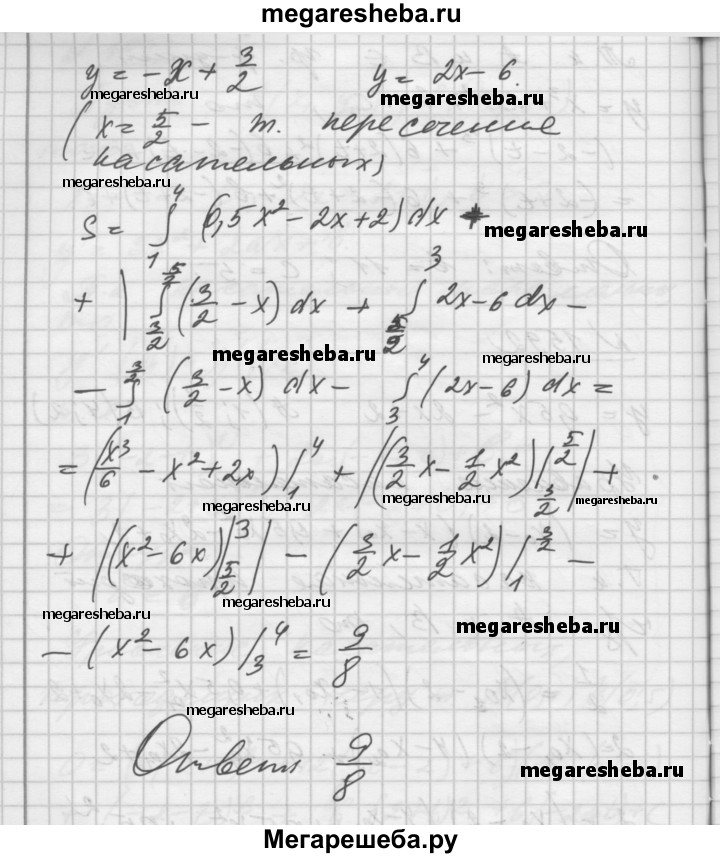 megaresheba.ru
y = -x + 3/2    y = 2x - 6.
megaresheba.ru megaresheba.ru
(x = 5/2 - т. пересечение
касательных)
megaresheba.ru
S = ∫₁⁴ (0,5x² - 2x + 2) dx +
megaresheba.ru
+ |∫_{3/2}^{5/2} (3/2 - x) dx + ∫_{5/2}^{3} 2x - 6 dx -
megaresheba.ru megaresheba.ru
- ∫_1^{3/2} (3/2 - x) dx - ∫_3^4 (2x - 6) dx =
= (x³/6 - x² + 2x) |_1^4 + |(3/2 x - 1/2 x²) |_{3/2}^{5/2}| +
megaresheba.ru megaresheba.ru megaresheba.ru
+ |(x² - 6x) |_{5/2}^3| - (3/2 x - 1/2 x²) |_1^{3/2} -
megaresheba.ru megaresheba.ru
- (x² - 6x) |_3^4 = 9/8
megaresheba.ru
megaresheba.ru
Ответ 9/8
megaresheba.ru
Мегарешеба.ру